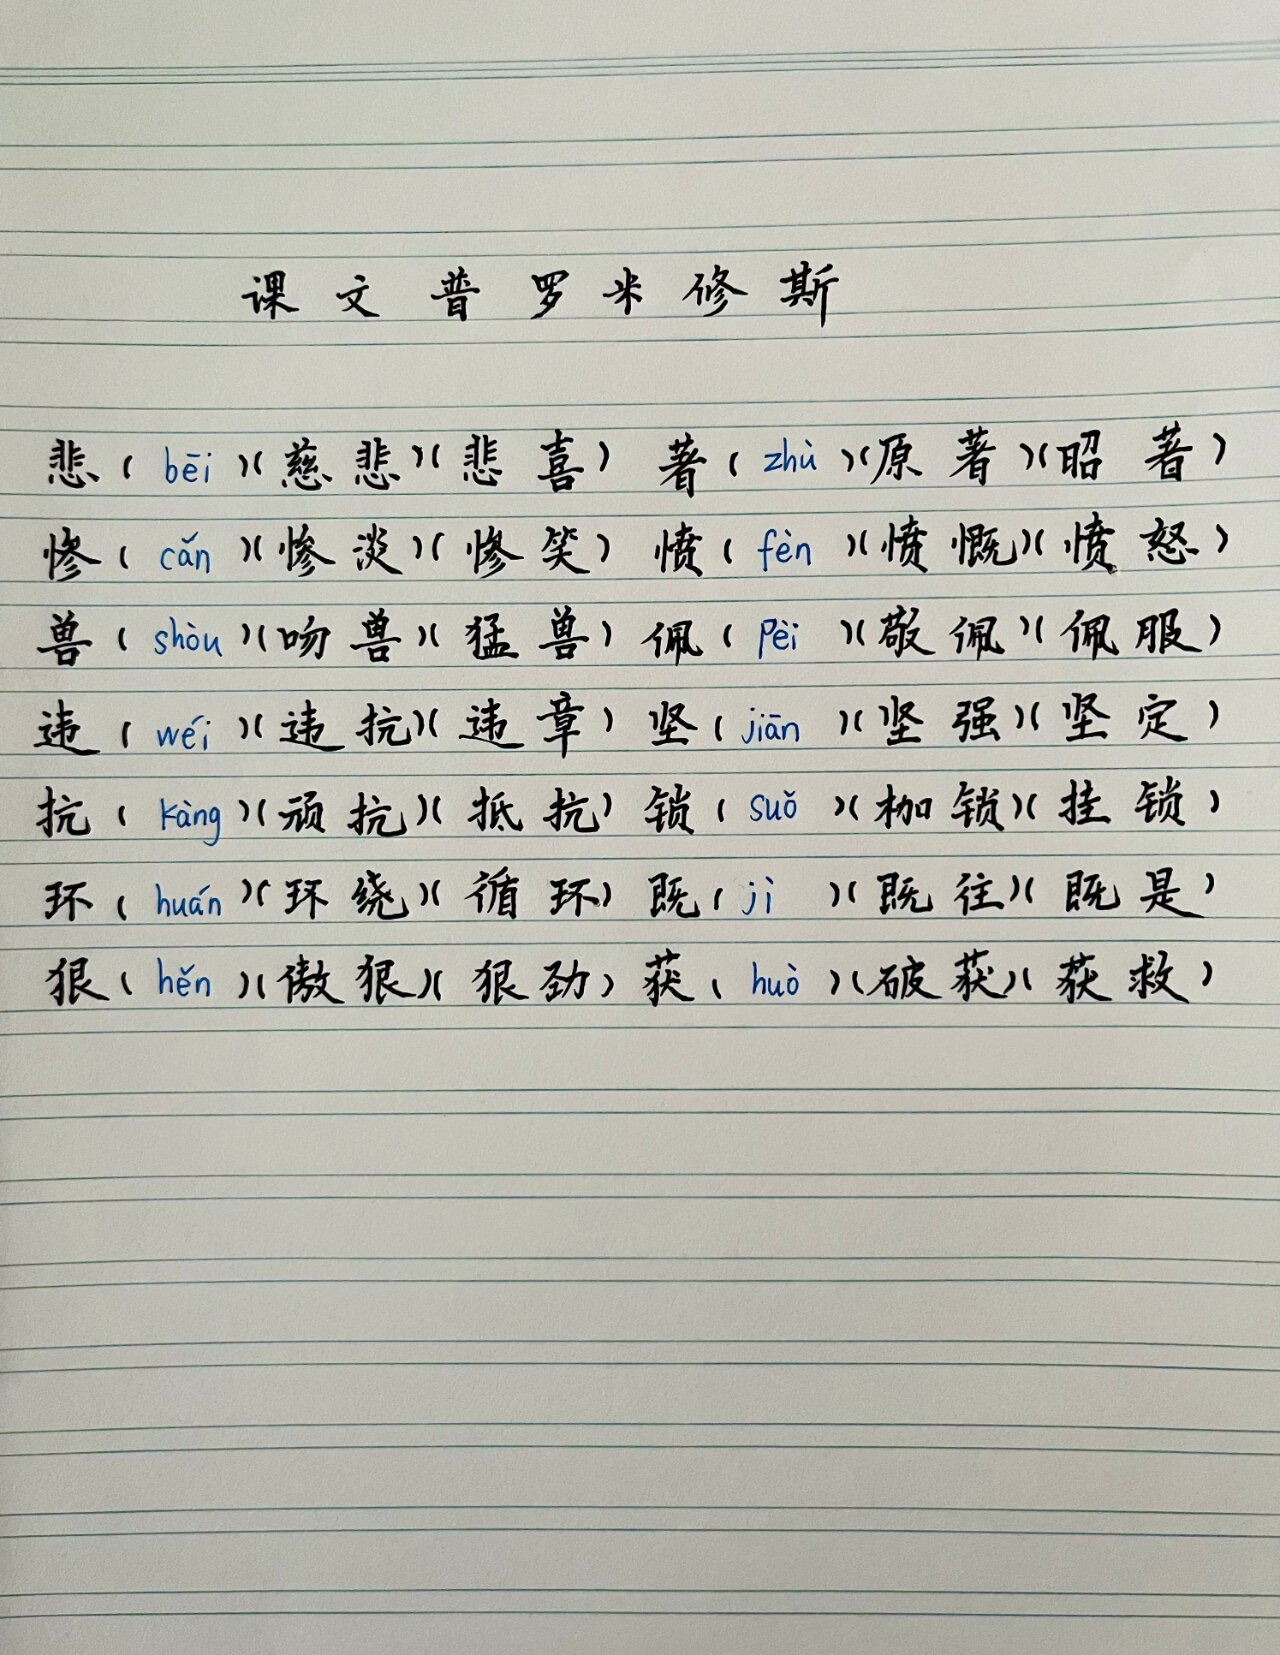 课文普罗米修斯
悲(bēi)(慈悲)(悲喜) 著(zhù)(原著)(昭著)
惨(cǎn)(惨淡)(惨笑) 愤(fèn)(愤慨)(愤怒)
兽(shòu)(吻兽)(猛兽) 佩(pèi)(敬佩)(佩服)
违(wéi)(违抗)(违章) 坚(jiān)(坚强)(坚定)
抗(kàng)(顽抗)(抵抗) 锁(suǒ)(枷锁)(挂锁)
环(huán)(环绕)(循环) 既(jì)(既往)(既是)
狠(hěn)(傲狠)(狠劲) 获(huò)(破获)(获救)